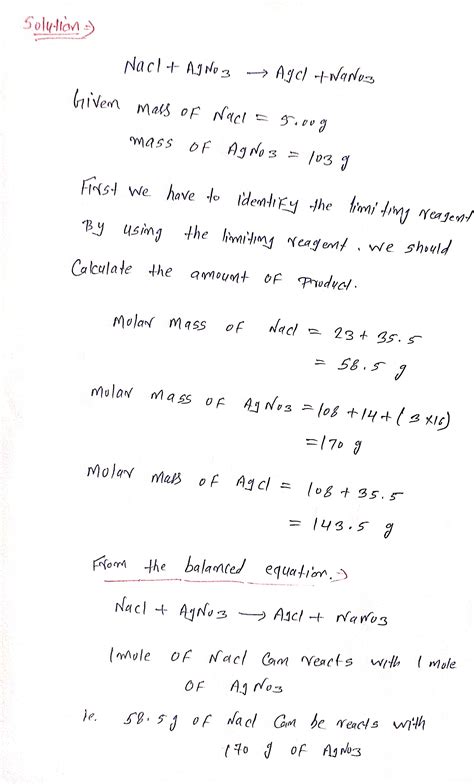 Solution:⇒
Nacl + AgNo3 → Agcl + NaNo3
Given mass of Nacl = 5.00g
mass of AgNo3 = 103 g
First we have to identify the limiting reagent
By using the limiting reagent. we should
Calculate the amount of product.
Molar mass of Nacl = 23 + 35.5
= 58.5 g
Molar mass of AgNo3 = 108 + 14 + (3×16)
= 170 g
Molar mass of Agcl = 108 + 35.5
= 143.5 g
From the balanced equation.⇒
Nacl + AgNo3 → Agcl + NaNo3
1mole of Nacl Can reacts with 1 mole
of AgNo3
ie. 58.5g of Nacl Can be reacts with
170 g of AgNo3